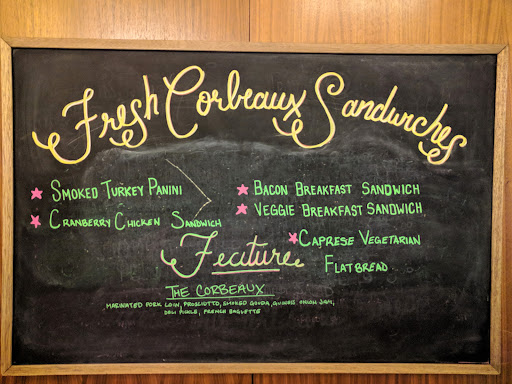 Fresh Corbeaux Sandwiches
SMOKED TURKEY PANINI
CRANBERRY CHICKEN SANDWICH
BACON BREAKFAST SANDWICH
VEGGIE BREAKFAST SANDWICH
CAPRESE VEGETARIAN
FLATBREAD
Feature
THE CORBEAUX
MARINATED PORK LOIN, PROSCIUTTO, SMOKED GOUDA, GUINNESS ONION JAM,
DELI PICKLE, FRENCH BAGUETTE